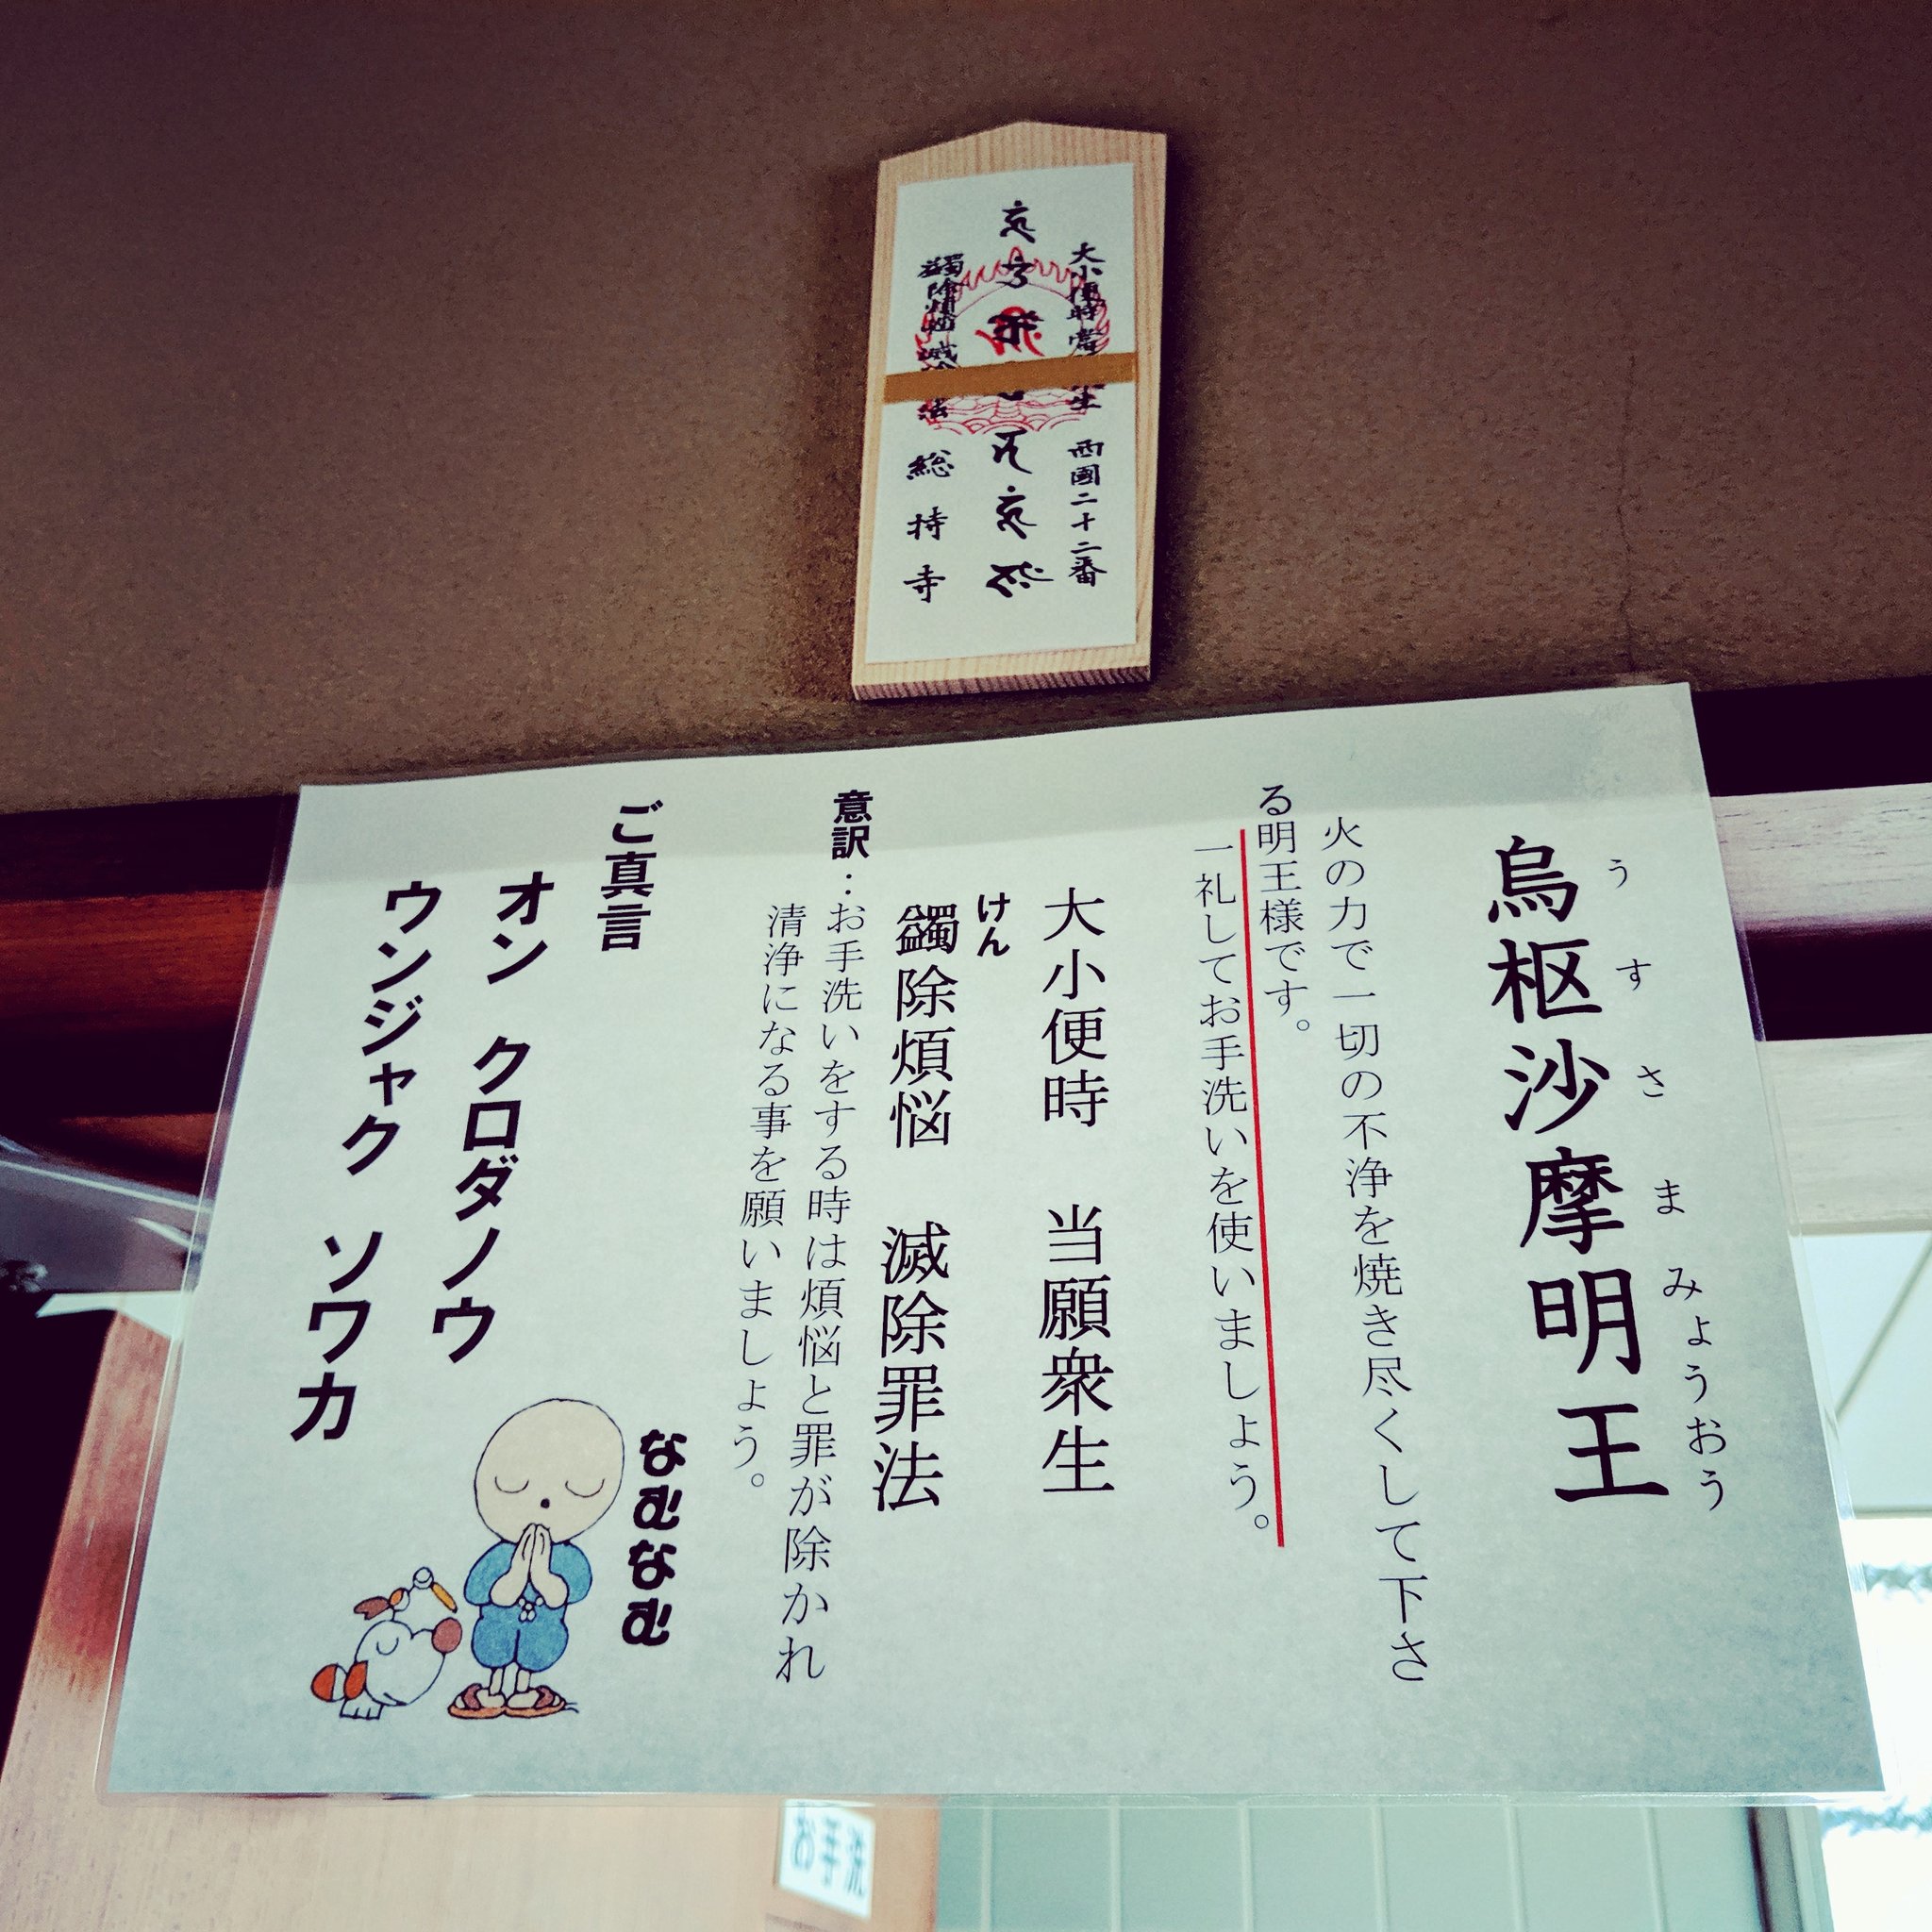 大小便時當
生
西國二十二番
蠲除煩惱滅
法
総持寺
うすさまみょうおう
烏枢沙摩明王
火の力で一切の不浄を焼き尽くして下さ
る明王様です。
一礼してお手洗いを使いましょう。
大小便時　当願衆生
けん
蠲除煩悩　滅除罪法
意訳：お手洗いをする時は煩悩と罪が除かれ
清浄になる事を願いましょう。
ご真言
オン　クロダノウ
ウンジャク　ソワカ
なむなむ
お手洗